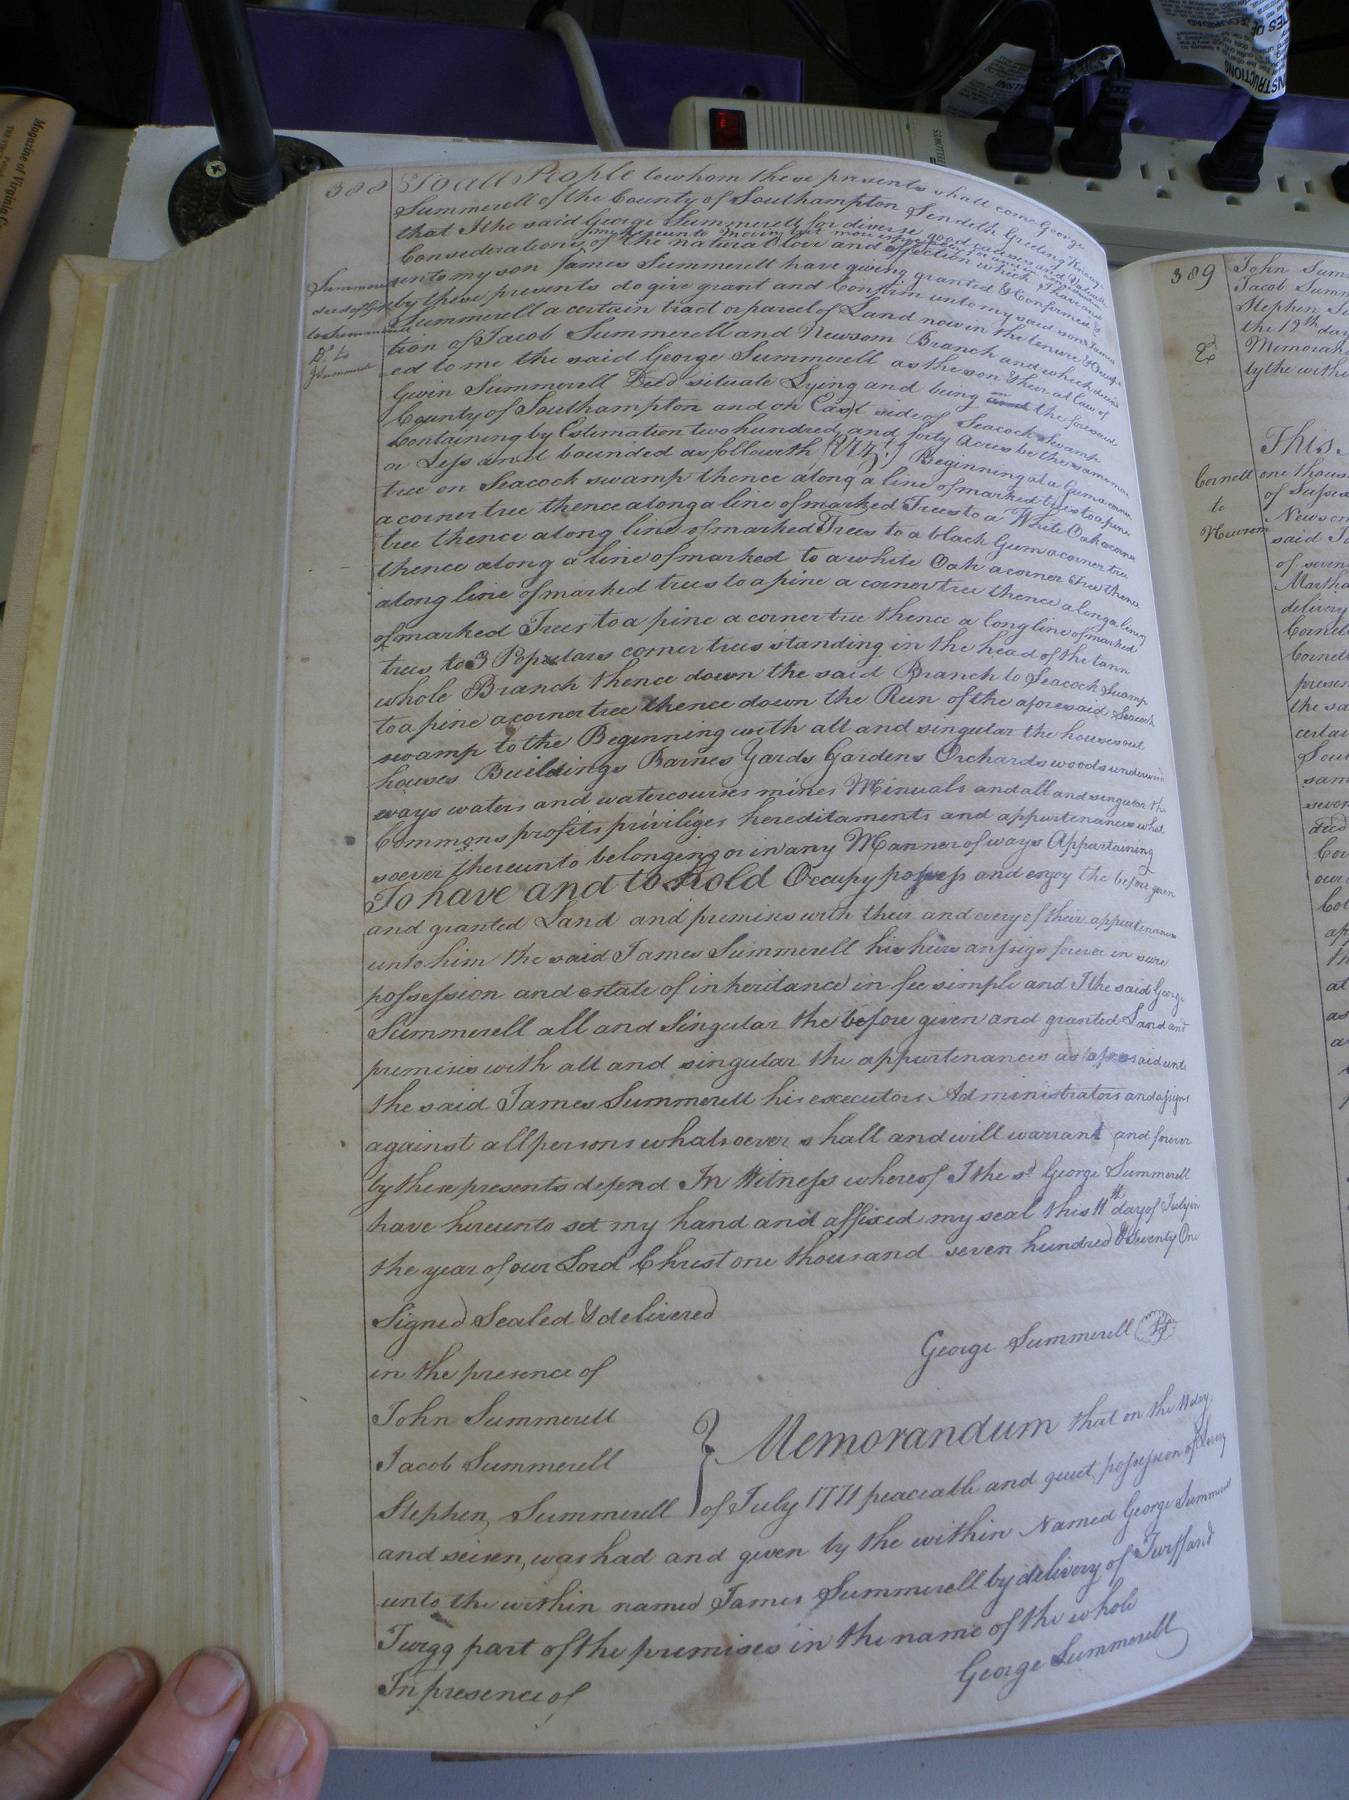 388
To all People to whom these presents shall come George
Summerell of the County of Southampton Sendeth Greeting Know ye
that I the said George Summerell for diverse good causes and Valuable
me hereunto moving but more especially for and in
Considerations of the natural love and affection which I have and
unto my son James Summerell have giving granted & Confirmed &
by these presents do give grant and Confirm unto my said son James
Summerell a certain tract or parcel of Land now in the tenure &
tion of Jacob Summerell and Newsom Branch and which
ed to me the said George Summerell as the son & heir at law of
Gwin Summerell Deed situate Lying and being in the foresaid
County of Southampton and on East side of Seacock swamp
Containing by Estimation two hundred and forty Acres be the same more
or Less and bounded as followeth (Vizt.) Beginning at a Gum a corner
tree on Seacock swamp thence along a line of marked trees to a pine
a corner tree thence along a line of marked Trees to a White Oak a corner
tree thence along line of marked Trees to a black Gum a corner tree
thence along a line of marked to a white Oak a corner Tree thence
along line of marked trees to a pine a corner tree thence along a line
of marked Trees to a pine a corner tree thence a long line of marked
trees to 3 Poplars corner trees standing in the head of the tann
whole Branch thence down the said Branch to Seacock Swamp
to a pine a corner tree thence down the Run of the aforesaid Seacock
swamp to the Beginning with all and singular the houses out
houses Buildings Barnes Yards Gardens Orchards woods underwood
ways waters and watercourses mines Minuals and all and singular the
Commons profits privileges hereditaments and appurtenances what
soever thereunto belonging or in any Manner of ways Appurtaining
To have and to hold Occupy possess and enjoy the before given
and granted Land and premises with their and every of their appurtenances
unto him the said James Summerell his heirs an assigs forever in sure
possession and estate of inheritance in fee simple and I the said George
Summerell all and Singular the before given and granted Land and
premises with all and singular the appurtenances as aforesaid unto
the said James Summerell his executors Administrators and assigns
against all persons whatsoever shall and will warrant and forever
by these presents defend In Witness whereof I the sd George Summerell
have hereunto set my hand and affixed my seal this 11th day of July in
the year of our Lord Christ one thousand seven hundred & Seventy One
Signed Sealed & delivered
in the presence of
George Summerell
John Summerell
Jacob Summerell
Stephen Summerell
Memorandum that on the 11 day
of July 1771 peaceable and quiet possession of
and seisen, was had and given by the within Named George Summerell
unto the within named James Summerell by delivery of Turff and
Twigg part of the premises in the name of the whole
In presence of
George Summerell
Summerell
deed of Gift
to Summerell
389
John Summ
Jacob Summ
Stephen Su
the 12th day
Memoran
by the withi
This
Cornell
to
Newsom
one thous
of Sussex
Newsom
said J
of seven
Martha
delivery
Cornell
Cornell
presen
the sa
certai
Sout
sam
seven
deed
Cor
our
Magazine of Virginia
FELLOWES
INSTRUCTIONS